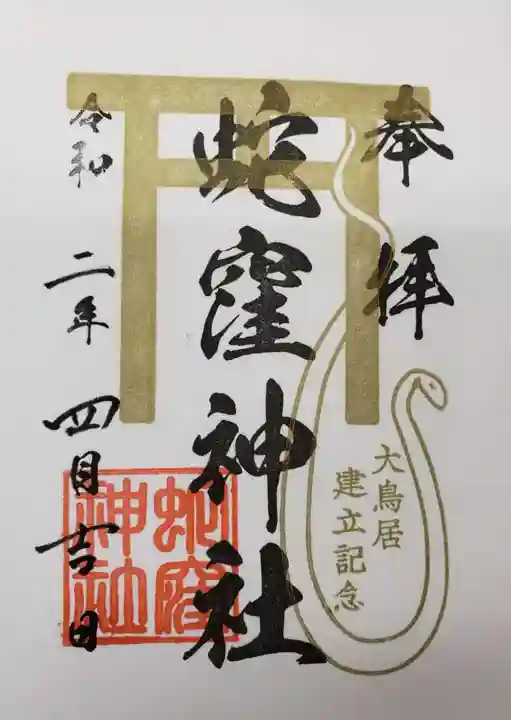 奉拝
大鳥居
建立記念
蛇窪神社
蛇窪
神社
令和二年四月吉日